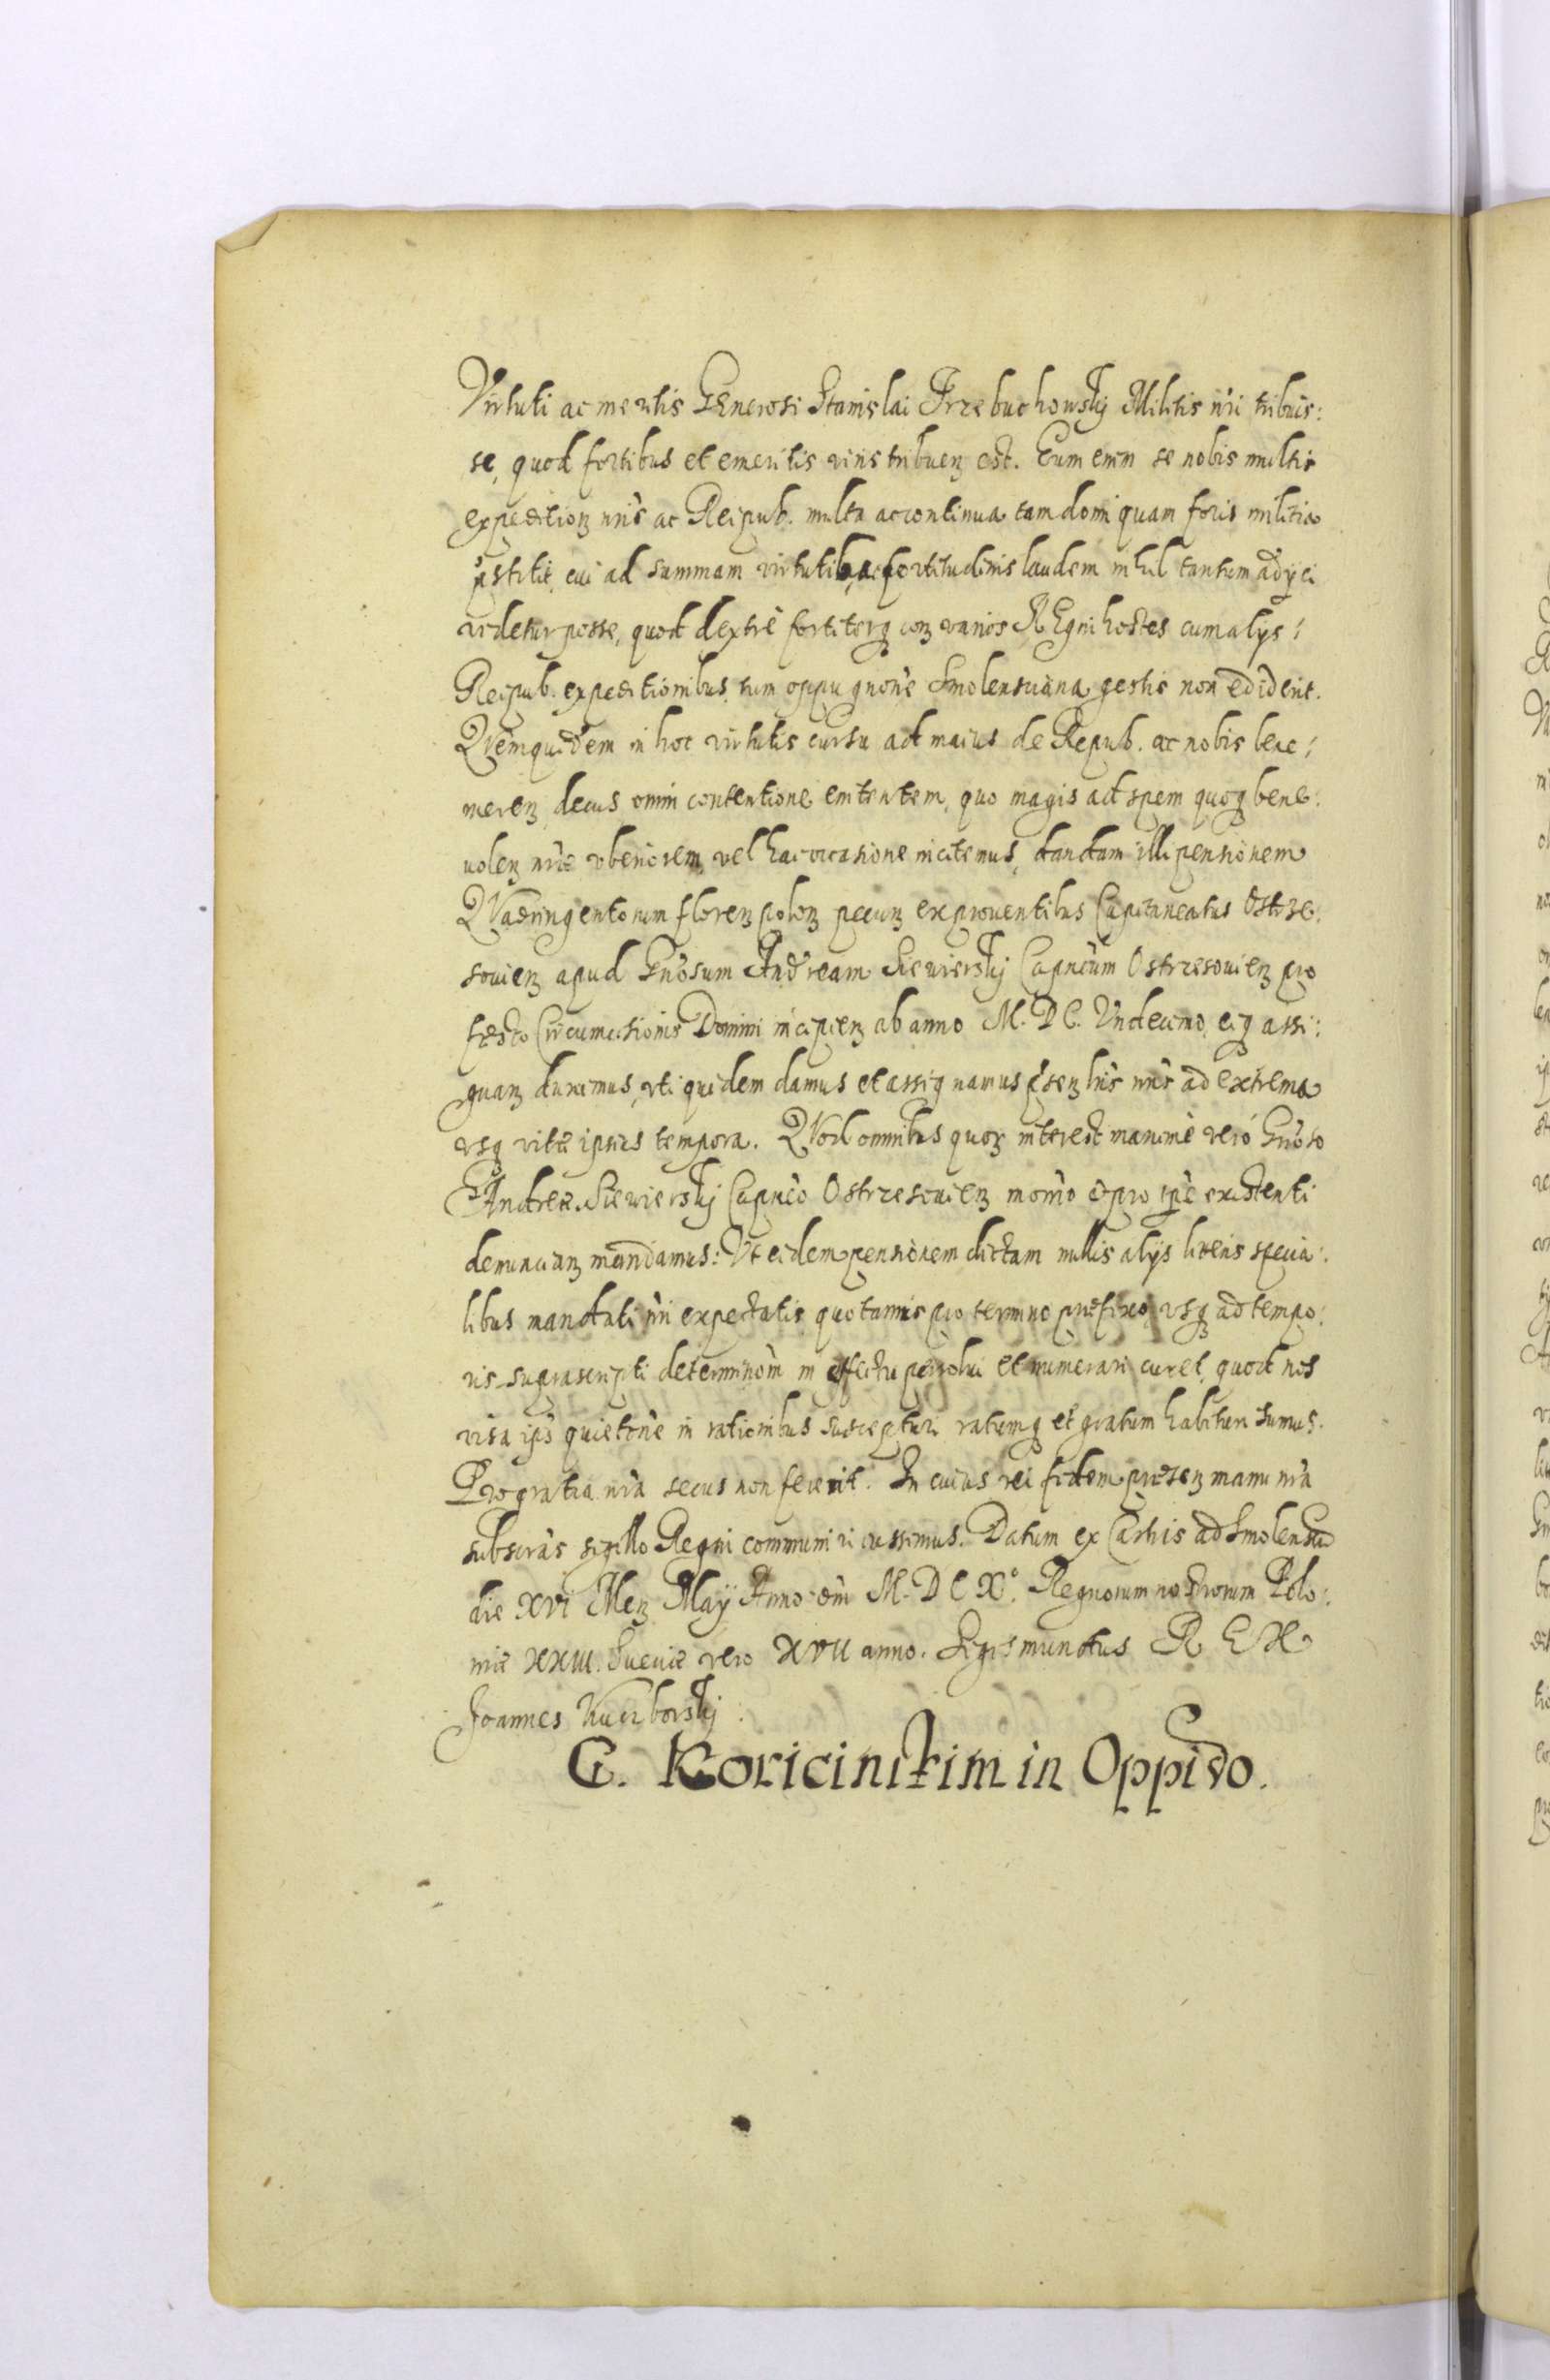 Virtuti ac meritis GEnerosi Stanislai Przebuchowskj Militis nri tribuis:
se, quod fortibus et emeritis viris tribuenꝫ est. Eum enim se nobis multis
expeditionꝫ nris ac Reipub. multa ac continua tam domi quam foris militia
pstitit, cui ad summam virtutis, ac fortitudinis laudem nihil tantum adÿci
videtur posse, quod dextrè fortiterqꝫ con varios REgni hostes cum alÿs:
Reipub. expeditionibus, tum oppugnone Smolensciana gestis non ediderit.
QVemquidem in hoc virtutis cursu ad maius de Repub. ac nobis bene:
merenꝫ decus omni contentione enitentem, quo magis ad spem quoqꝫ bene:
uolenꝫ nrae vberiorem, vel hac occasione incitemus, dandam illi pensionem
QVadringentorum florenꝫ polonꝫ pecunꝫ ex prouentibus Capitaneatus Ostrze:
souienꝫ apud Gnosum Andream Siewierskj Capneum Ostrzesouienꝫ pro
festo Circumcisionis Domini incipienꝫ ab anno M. D C. Vndecimo, eiqꝫ assi:
gnanꝫ duximus, vti quidem damus et assignamus psenꝫ lris nris ad extrema
vsqꝫ vitae ipsius tempora. QVod omnibus quorꝫ interest maxime verò Gnoso
Andreae Siewierskj Capneo Ostrzesouienꝫ mono et pro tpe existenti
denuncianꝫ mandamus: Vt eidem pensionem dictam nullis alÿs literis specia:
libus mandati nri expectatis, quotannis pro termino praefixo, vsqꝫ ad tempo:
ris suprascripti determinom in effectu persolui et numerari curet, quod nos
visa ips quietone in rationibus suscepturi ratumqꝫ et gratum habituri sumus.
Pro gratia nra secus non fecerit. In cuius rei fidem praesenꝫ manu nra
subscras sigillo Regni communiri iussimus. Datum ex Castris ad Smolensco
die XVI Menꝫ Maÿ Anno dni M. D C X°. Regnorum nostrorum Polo:
niae XXIII. Sueciae vero XVII anno. Sigismundus R E X
Joannes Kuczborskj.
G. Koricinikim in Oppido.